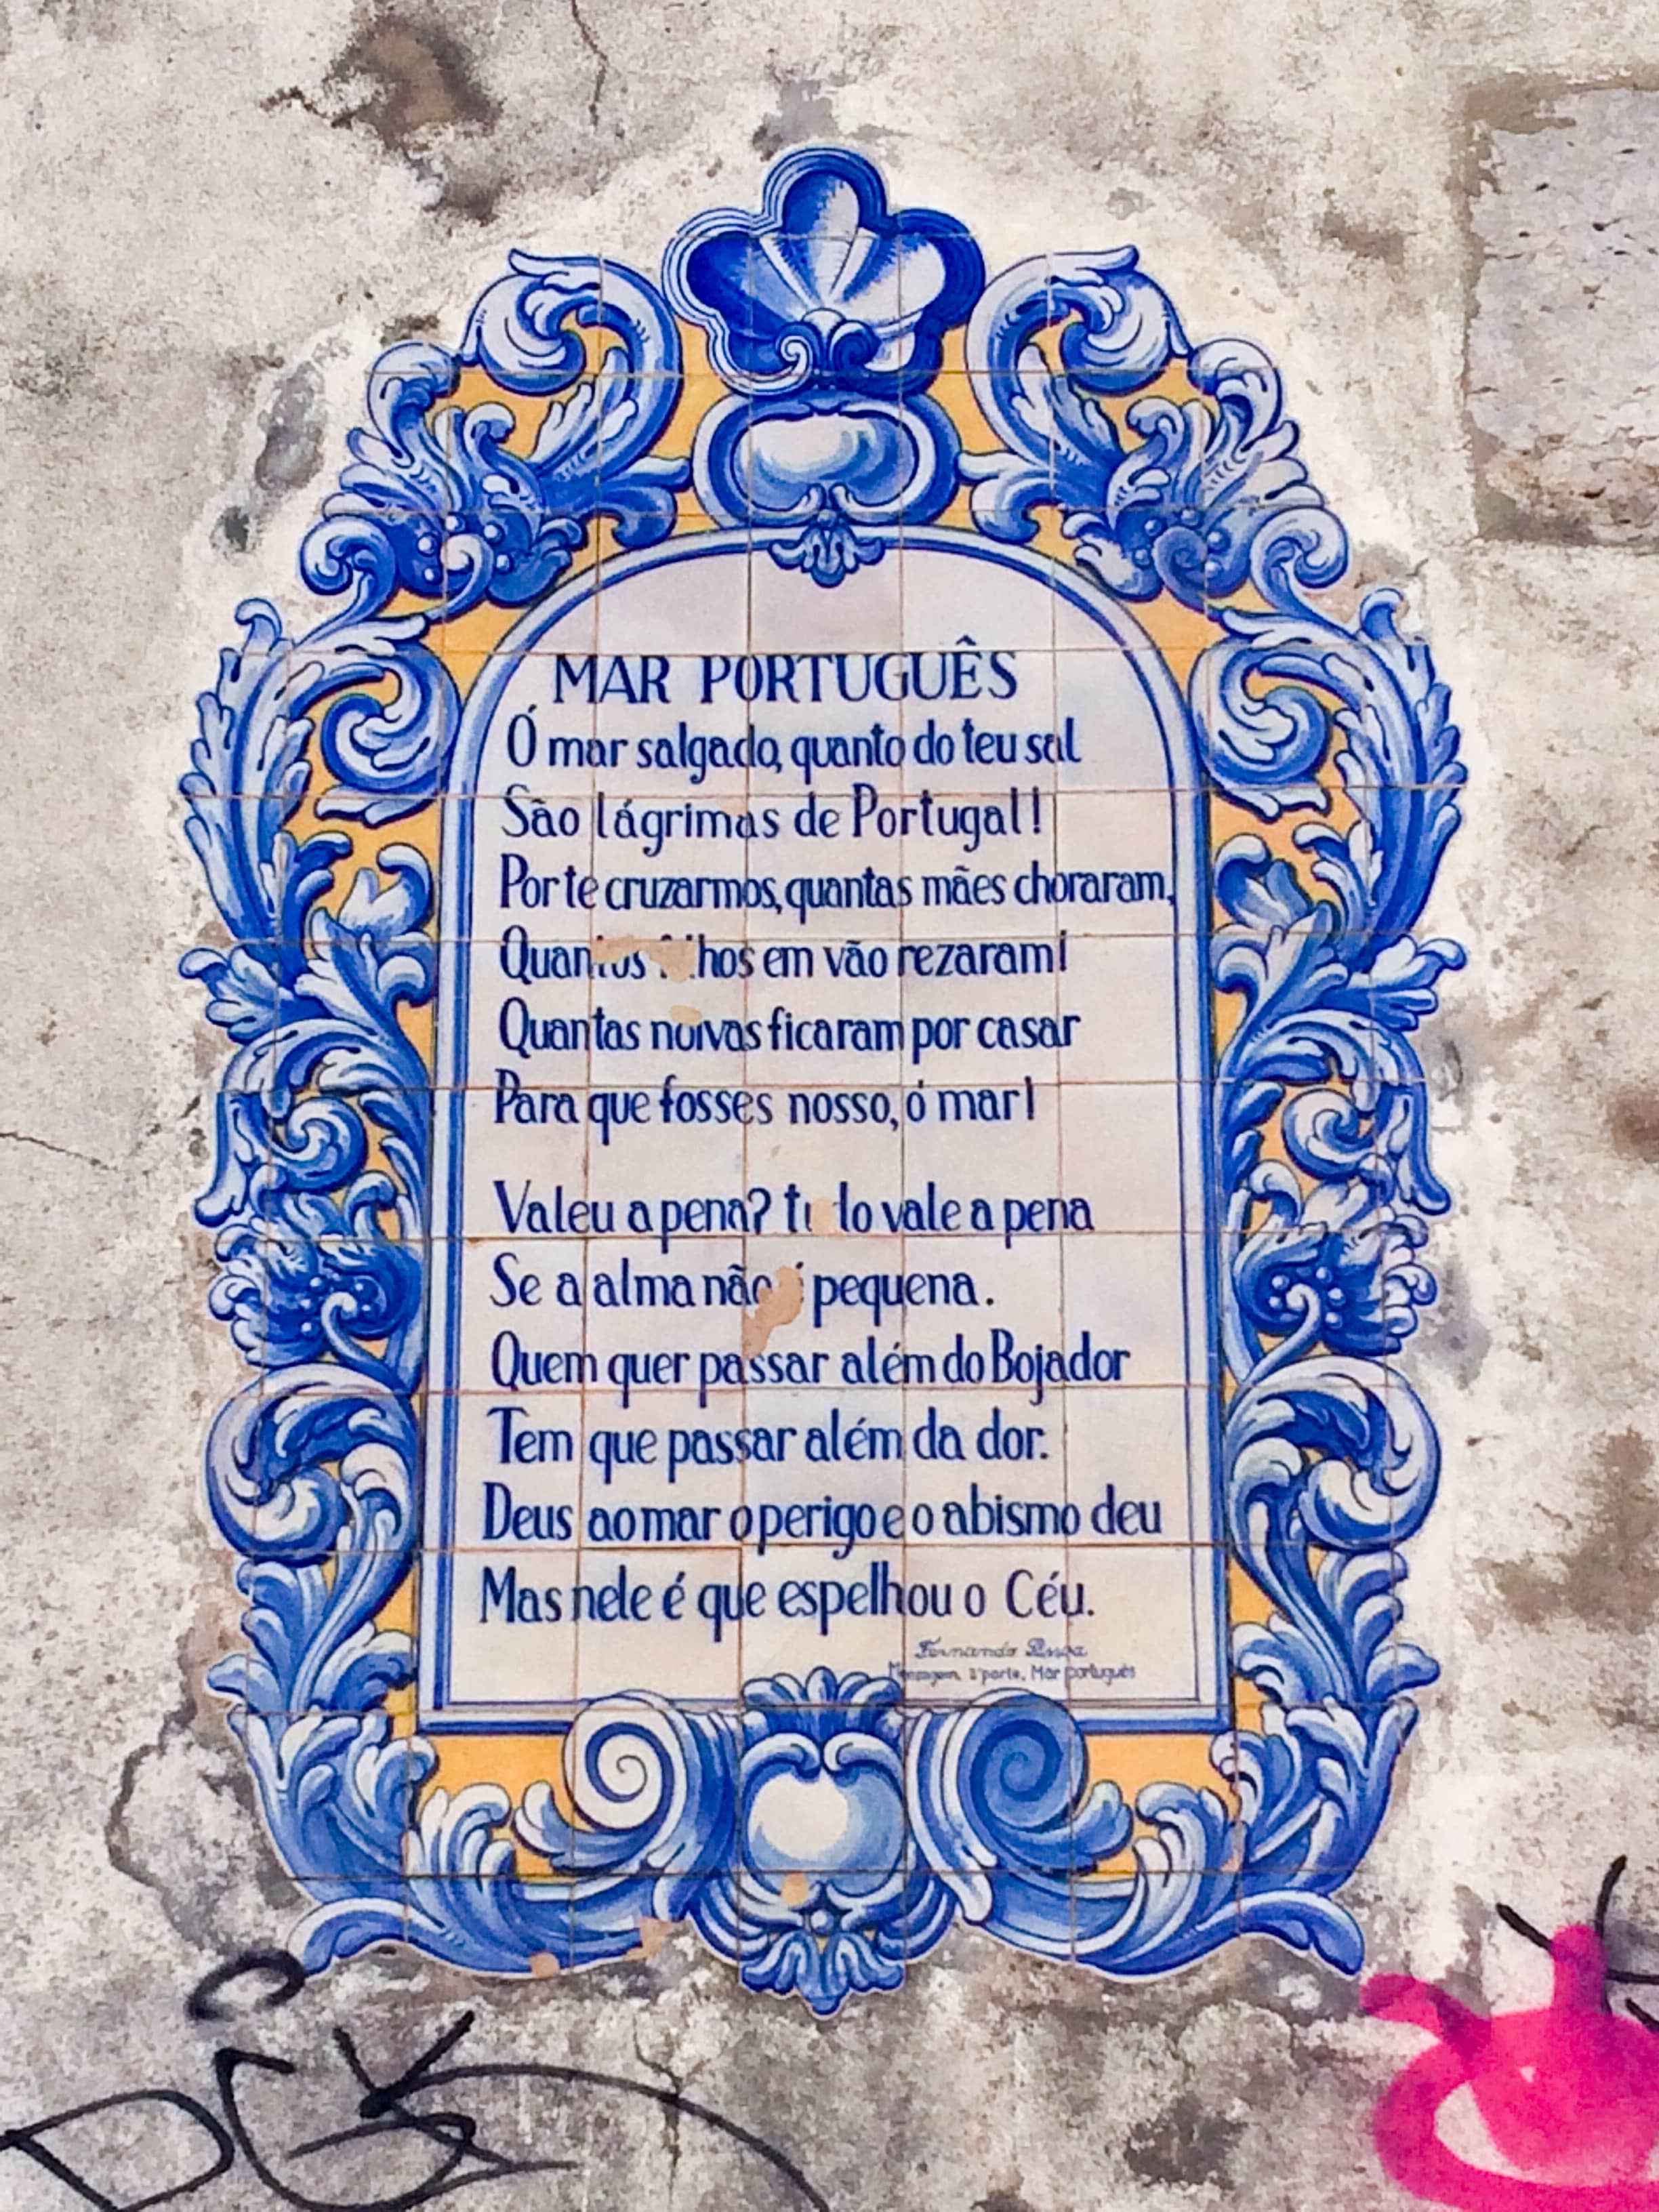 MAR PORTUGUÊS
Ó mar salgado, quanto do teu sal
São lágrimas de Portugal!
Por te cruzarmos, quantas mães choraram,
Quantos filhos em vão rezaram!
Quantas noivas ficaram por casar
Para que fosses nosso, ó mar!
Valeu a pena? tudo vale a pena
Se a alma não é pequena.
Quem quer passar além do Bojador
Tem que passar além da dor.
Deus ao mar o perigo e o abismo deu
Mas nele é que espelhou o Céu.
Fernando Pessoa
Mensagem 2ª parte, Mar português